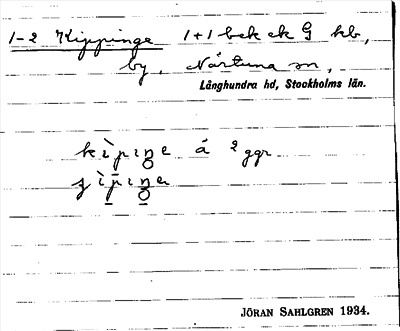 1-2 Kippinge 1+1 bck ck G kb,
by, Närtuna sn,
Långhundra hd, Stockholms län.
kìpiŋe å 2 ggr
JÖRAN SAHLGREN 1934.